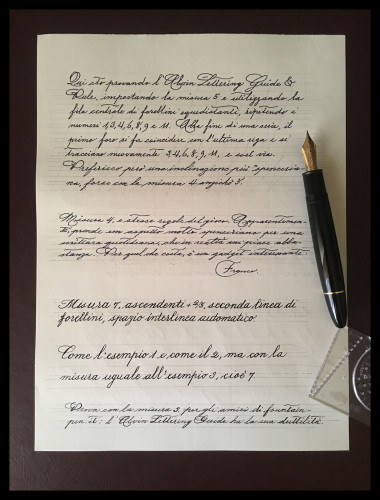 Qui sto provando l'Alvin Lettering Guide &
Rule, impostando la misura 5 e utilizzando la
fila centrale di forellini equidistanti, ripetendo i
numeri 1,3,4,6,8,9 e 11. Alla fine di una serie, il
primo foro si fa coincidere con l'ultima riga e si
tracciano nuovamente 3-4,6,8,9,11, e così via.
Preferisco però una inclinazione più "spenceria-
na, forse con la misura 4 anziché 5.
Misura 4, e stesse regole del gioco. Apparentemen-
te, prende un aspetto molto spenceriano per una
scrittura quotidiana, che in realtà mi piace abba-
stanza. Per quel che costa, è un gadget interessante.
Franco.
Misura 7, ascendenti + 2/3, seconda linea di
forellini, spazio interlinea automatico
Come l'esempio 1 e come il 2, ma con la
misura uguale all'esempio 3, cioè 7.
Prova con la misura 3, per gli amici di fountain-
pen.it: l'Alvin Lettering Guide ha la sua duttilità.